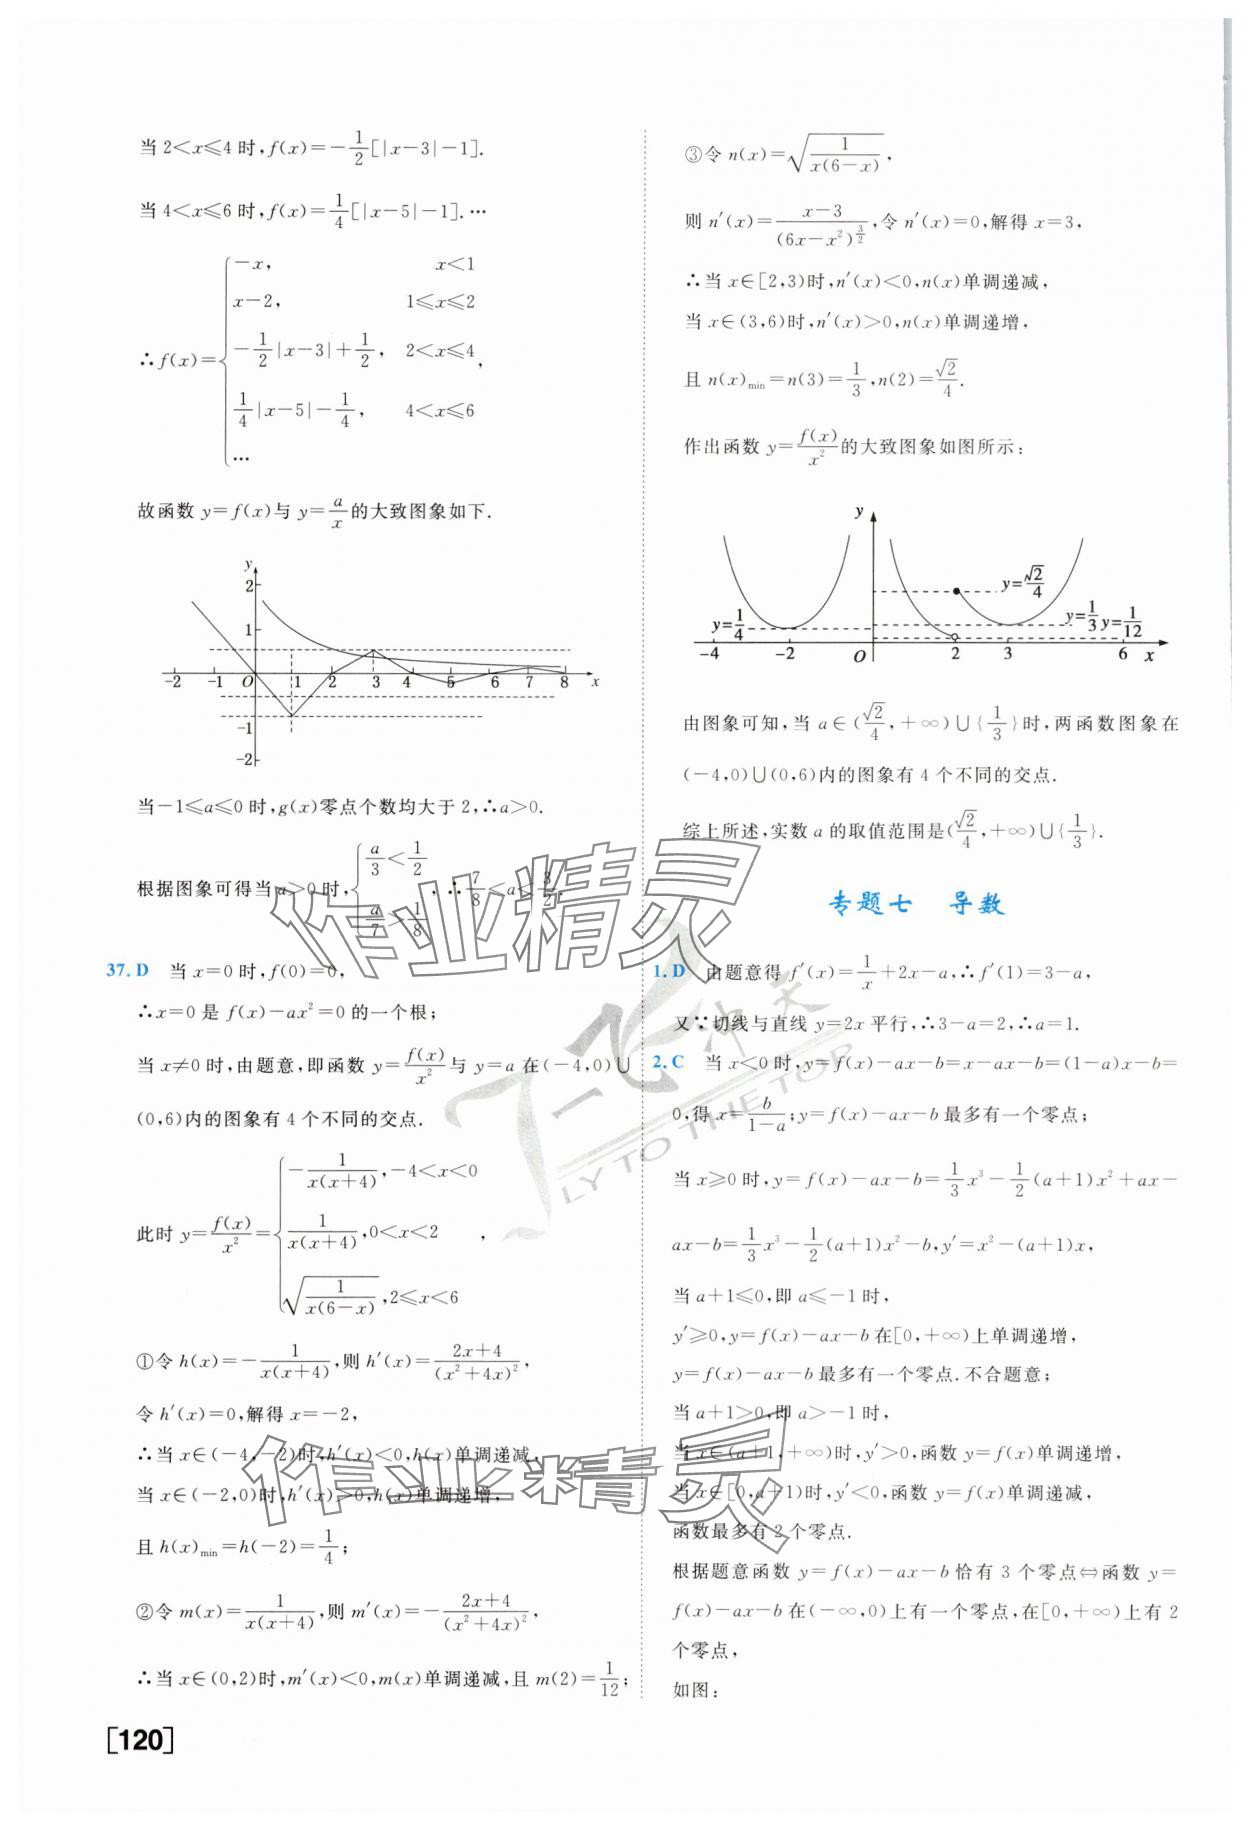 当 2<x≤4 时,f(x)=-1/2[|x-3|-1].
当 4<x≤6 时,f(x)=1/4[|x-5|-1].…
∴f(x)={
-x, x<1
x-2, 1≤x≤2
-1/2|x-3|+1/2, 2<x≤4,
1/4|x-5|-1/4, 4<x≤6
…
故函数 y=f(x)与 y=a/x的大致图象如下.
y
2
1
-2 -1 O 1 2 3 4 5 6 7 8 x
-1
-2
当-1≤a≤0 时,g(x)零点个数均大于 2,∴a>0.
根据图象可得当 a>0 时,{a/3<1/2, a/7>1/8,∴7/8<a<3/2.
37.D 当 x=0 时,f(0)=0,
∴x=0 是 f(x)-ax²=0 的一个根;
当 x≠0 时,由题意,即函数 y=f(x)/x²与 y=a 在(-4,0)∪
(0,6)内的图象有 4 个不同的交点.
此时 y=f(x)/x²={
-1/(x(x+4)),-4<x<0
1/(x(x+4)),0<x<2,
√(1/(x(6-x))),2≤x<6
①令 h(x)=-1/(x(x+4)),则 h′(x)=(2x+4)/(x²+4x)²,
令 h′(x)=0,解得 x=-2,
∴当 x∈(-4,-2)时,h′(x)<0,h(x)单调递减,
当 x∈(-2,0)时,h′(x)>0,h(x)单调递增,
且 h(x)min=h(-2)=1/4;
②令 m(x)=1/(x(x+4)),则 m′(x)=-(2x+4)/(x²+4x)²,
∴当 x∈(0,2)时,m′(x)<0,m(x)单调递减,且 m(2)=1/12;
[120]
③令 n(x)=√(1/(x(6-x))),
则 n′(x)=(x-3)/(6x-x²)^(3/2),令 n′(x)=0,解得 x=3,
∴当 x∈[2,3)时,n′(x)<0,n(x)单调递减,
当 x∈(3,6)时,n′(x)>0,n(x)单调递增,
且 n(x)min=n(3)=1/3,n(2)=√2/4.
作出函数 y=f(x)/x²的大致图象如图所示:
y
y=√2/4
y=1/4 y=1/3 y=1/12
-4 -2 O 2 3 6 x
由图象可知,当 a∈(√2/4,+∞)∪{1/3}时,两函数图象在
(-4,0)∪(0,6)内的图象有 4 个不同的交点.
综上所述,实数 a 的取值范围是(√2/4,+∞)∪{1/3}.
专题七 导数
1.D 由题意得 f′(x)=1/x+2x-a,∴f′(1)=3-a,
又∵切线与直线 y=2x 平行,∴3-a=2,∴a=1.
2.C 当 x<0 时,y=f(x)-ax-b=x-ax-b=(1-a)x-b=
0,得 x=b/(1-a);y=f(x)-ax-b 最多有一个零点;
当 x≥0 时,y=f(x)-ax-b=1/3x³-1/2(a+1)x²+ax-
ax-b=1/3x³-1/2(a+1)x²-b,y′=x²-(a+1)x,
当 a+1≤0,即 a≤-1 时,
y′≥0,y=f(x)-ax-b 在[0,+∞)上单调递增,
y=f(x)-ax-b 最多有一个零点.不合题意;
当 a+1>0,即 a>-1 时,
当 x∈(a+1,+∞)时,y′>0,函数 y=f(x)单调递增,
当 x∈[0,a+1)时,y′<0,函数 y=f(x)单调递减,
函数最多有 2 个零点.
根据题意函数 y=f(x)-ax-b 恰有 3 个零点⇔函数 y=
f(x)-ax-b 在(-∞,0)上有一个零点,在[0,+∞)上有 2
个零点,
如图:
作业精灵
作业精灵
一飞冲天
FLY TO THE TOP